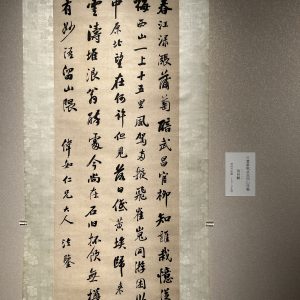 春江淥漲蒲萄醅武昌官柳知誰栽憶從
梅西山一上十五里風駕兩腋飛崔嵬同遊困臥
中原北望在何許但見落日低黃埃歸來
雲濤堆浪翁醉處今尚在石臼抔飲無樽
有妙語留山隈 偉如仁兄大人法鑒